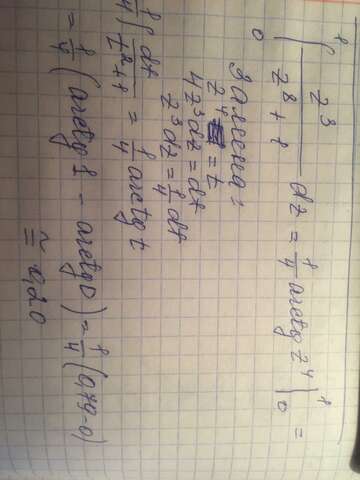 ∫₀¹ z³/(z⁸ + 1) dz = 1/4 arctg z⁴ |₀¹ =
Замена:
z⁴ = t
4z³dz = dt
z³dz = 1/4 dt
1/4 ∫ dt/(t² + 1) = 1/4 arctg t
= 1/4 (arctg 1 − arctg 0) = 1/4 (0,79−0)
≃ 0,20